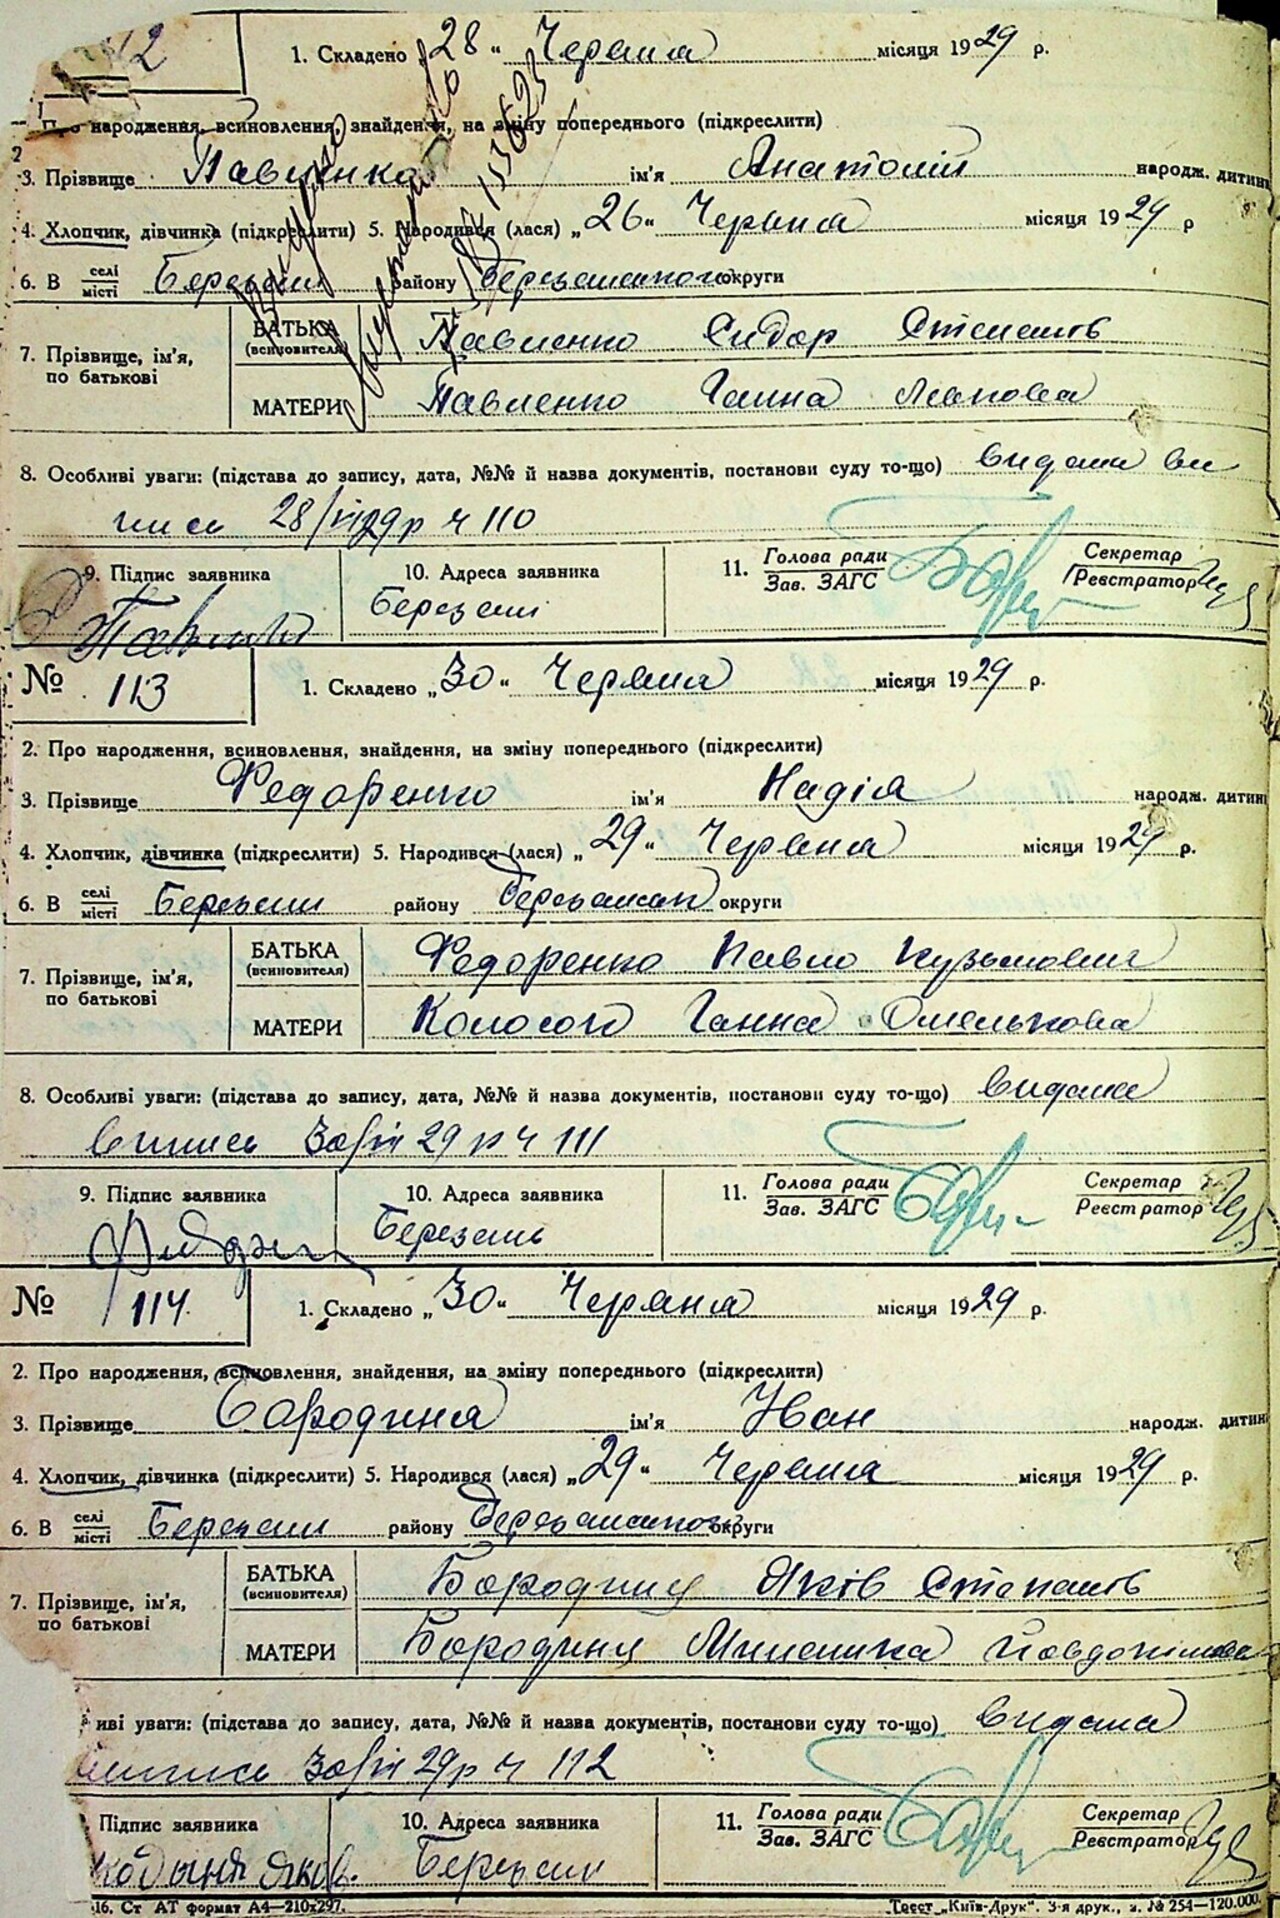 112 1. Складено „28“ Червня місяця 1929 р.
Про народження, всиновлення, знайдення, на зміну попереднього (підкреслити)
3. Прізвище Павленко ім'я Анатолій народж. дитини
4. Хлопчик, дівчинка (підкреслити) 5. Народився (лася) „26“ Червня місяця 1929 р
6. В селі місті Березани району Березанського округи
7. Прізвище, ім'я, по батькові
БАТЬКА (всиновителя) Павленко Сидор Степанів
МАТЕРИ Павленко Ганна
8. Особливі уваги: (підстава до запису, дата, №№ й назва документів, постанови суду то-що) видана ви
пись 28/VI 29 р ч 110
9. Підпис заявника 10. Адреса заявника 11. Голова ради Зав. ЗАГС Секретар Реєстратор
Березані
№ 113 1. Складено „30“ Червня місяця 1929 р.
2. Про народження, всиновлення, знайдення, на зміну попереднього (підкреслити)
3. Прізвище Федоренко ім'я Надія народж. дитини
4. Хлопчик, дівчинка (підкреслити) 5. Народився (лася) „29“ Червня місяця 1929 р.
6. В селі місті Березани району Березанськ округи
7. Прізвище, ім'я, по батькові
БАТЬКА (всиновителя) Федоренко Павло Кузьмович
МАТЕРИ Ганна Омелькова
8. Особливі уваги: (підстава до запису, дата, №№ й назва документів, постанови суду то-що) видана
випись 30/VI 29 р ч 111
9. Підпис заявника 10. Адреса заявника 11. Голова ради Зав. ЗАГС Секретар Реєстратор
Березань
№ 114. 1. Складено „30“ Червня місяця 1929 р.
2. Про народження, всиновлення, знайдення, на зміну попереднього (підкреслити)
3. Прізвище Бородиня ім'я Іван народж. дитини
4. Хлопчик, дівчинка (підкреслити) 5. Народився (лася) „29“ Червня місяця 1929 р.
6. В селі місті Березани району Березанського округи
7. Прізвище, ім'я, по батькові
БАТЬКА (всиновителя) Бородиня Яків Степанів
МАТЕРИ Бородиня Йовдокимова
иві уваги: (підстава до запису, дата, №№ й назва документів, постанови суду то-що) видана
випись 30/VI 29 р ч 112
Підпис заявника 10. Адреса заявника 11. Голова ради Зав. ЗАГС Секретар Реєстратор
Березани
16. Ст АТ формат А4—210х297. Трест „Київ-Друк“. 3-я друк., з. № 254—120.000.